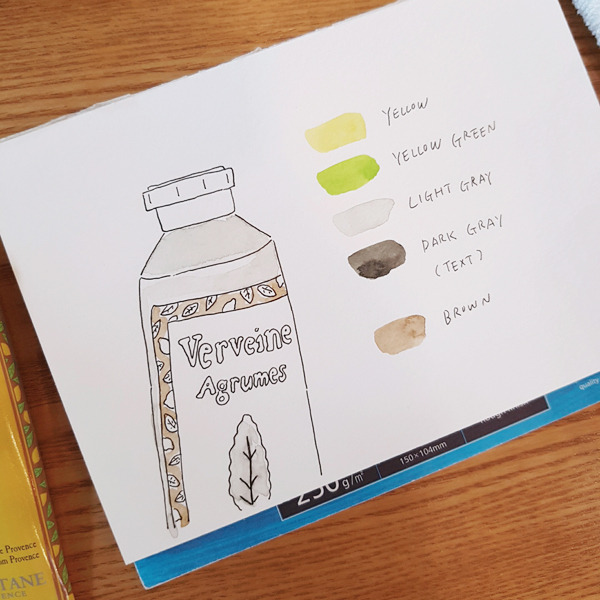 YELLOW
YELLOW GREEN
LIGHT GRAY
DARK GRAY
(TEXT)
BROWN
Verveine
Agrumes
250g/m²
150×104mm
quality
e Provence
m Provence
TANE
ENCE